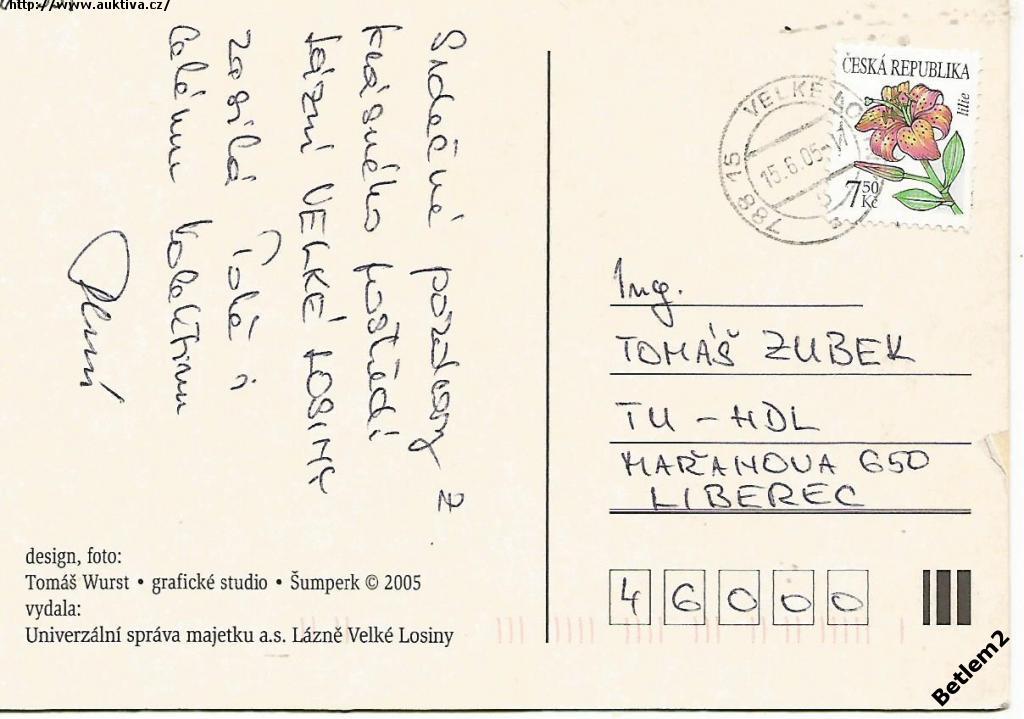 http://www.auktiva.cz/
Srdečné pozdravy z
krásného prostředí
lázní VELKÉ LOSINY
zasílá
celému kolektivu
ČESKÁ REPUBLIKA
lilie
7 50 Kč
788 15 VELKÉ LO
15.6.05
Ing.
TOMÁŠ ZUBEK
TU - HDL
MAŘANOVA 650
LIBEREC
46000
design, foto:
Tomáš Wurst • grafické studio • Šumperk © 2005
vydala:
Univerzální správa majetku a.s. Lázně Velké Losiny
Betlem2